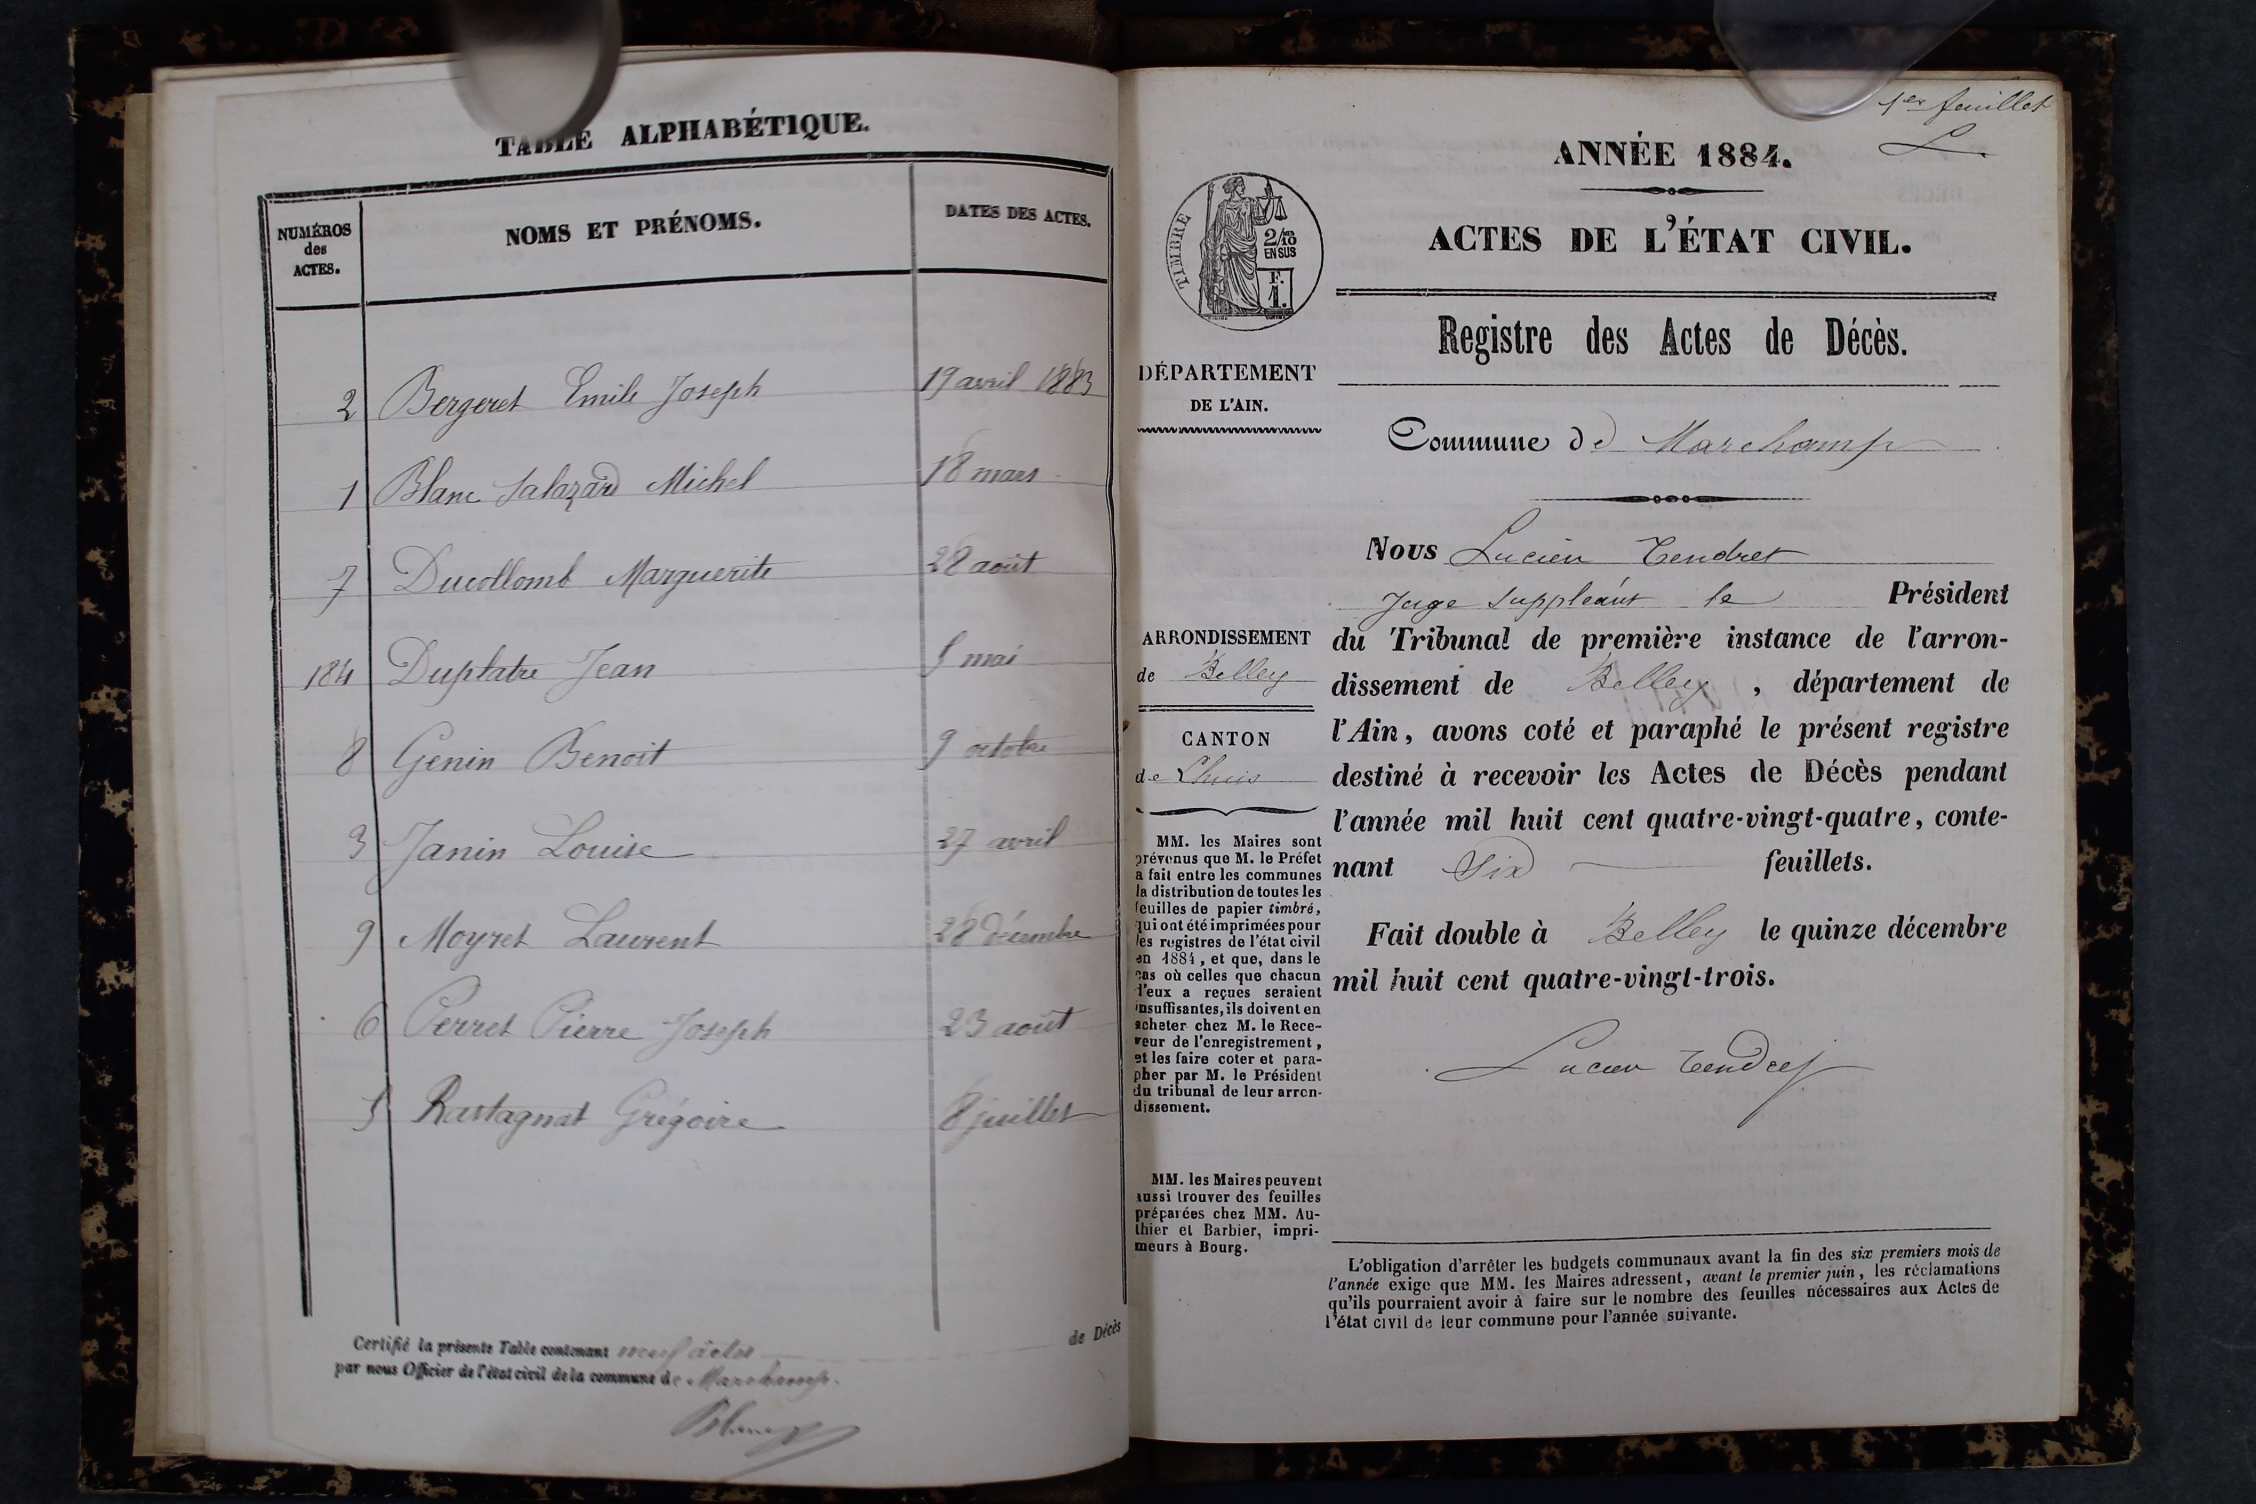 TABLE ALPHABÉTIQUE.
NUMÉROS
des
ACTES.
NOMS ET PRÉNOMS.
DATES DES ACTES.
2 Bergeret Emile Joseph 19 avril 1883
1 Blanc Salazard Michel 18 mars
7 Ducollomb Marguerite 28 août
4 Duplatre Jean 5 mai
8 Genin Benoit 9 octobre
3 Janin Louise 27 avril
9 Moyret Laurent 28 Décembre
6 Perret Pierre Joseph 23 août
5 Rastagnat Grégoire 8 juillet
Certifié la présente Table contenant neuf actes de Décès
par nous Officier de l'état civil de la commune de Marchamp.
Blanc
1er feuillet
ANNÉE 1884.
TIMBRE
2/10
EN SUS
F.
1.
ACTES DE L'ÉTAT CIVIL.
Registre des Actes de Décès.
DÉPARTEMENT
DE L'AIN.
Commune de Marchamp
Nous Lucien Tendret
Juge suppléant le Président
du Tribunal de première instance de l'arron-
dissement de Belley, département de
l'Ain, avons coté et paraphé le présent registre
destiné à recevoir les Actes de Décès pendant
l'année mil huit cent quatre-vingt-quatre, conte-
nant Six feuillets.
Fait double à Belley le quinze décembre
mil huit cent quatre-vingt-trois.
Lucien Tendret
ARRONDISSEMENT
de Belley
CANTON
de Lhuis
MM. les Maires sont
prévenus que M. le Préfet
a fait entre les communes
la distribution de toutes les
feuilles de papier timbré,
qui ont été imprimées pour
les registres de l'état civil
en 1884, et que, dans le
cas où celles que chacun
d'eux a reçues seraient
insuffisantes, ils doivent en
acheter chez M. le Rece-
veur de l'enregistrement,
et les faire coter et para-
pher par M. le Président
du tribunal de leur arron-
dissement.
MM. les Maires peuvent
aussi trouver des feuilles
préparées chez MM. Au-
thier et Barbier, impri-
meurs à Bourg.
L'obligation d'arrêter les budgets communaux avant la fin des six premiers mois de
l'année exige que MM. les Maires adressent, avant le premier juin, les réclamations
qu'ils pourraient avoir à faire sur le nombre des feuilles nécessaires aux Actes de
l'état civil de leur commune pour l'année suivante.